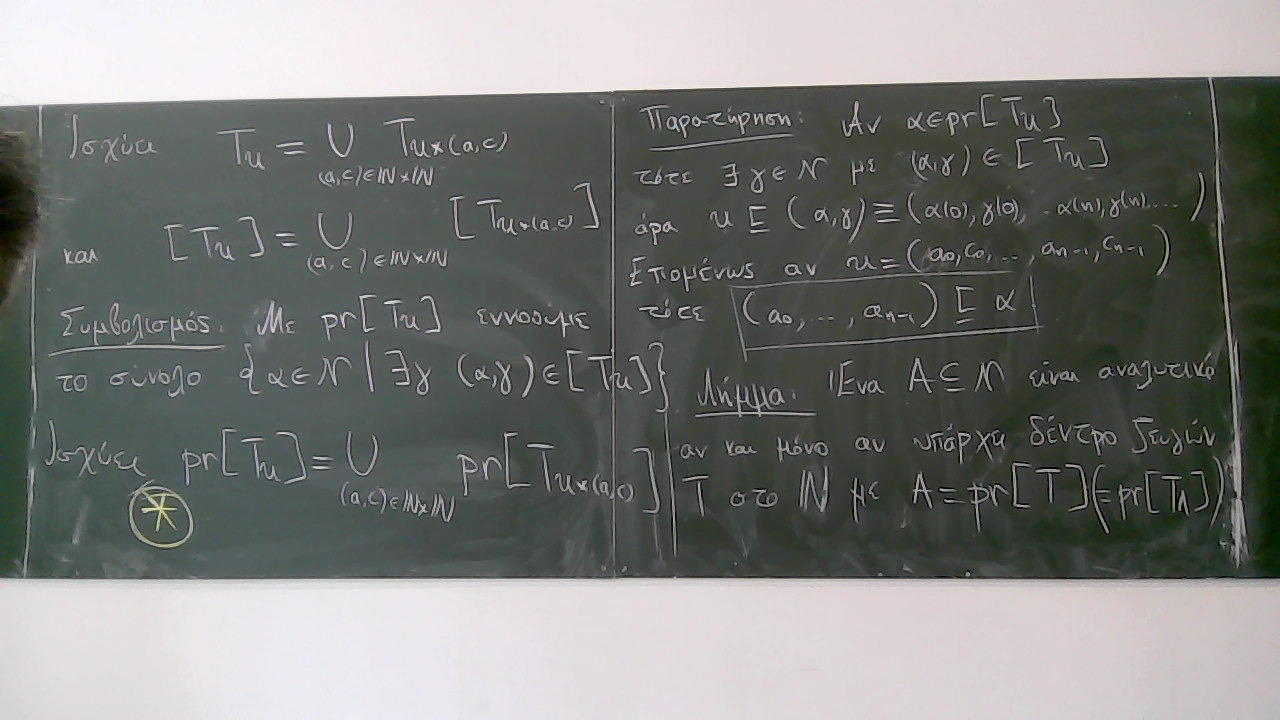 Ισχύει T_u = ∪_{(a,c)∈ℕ×ℕ} T_{u*(a,c)}
και [T_u] = ∪_{(a,c)∈ℕ×ℕ} [T_{u*(a,c)}]
Συμβολισμός: Με pr[T_u] εννοούμε
το σύνολο {α∈𝒩 | ∃γ (α,γ)∈[T_u]}
Ισχύει pr[T_u] = ∪_{(a,c)∈ℕ×ℕ} pr[T_{u*(a,c)}]
*
Παρατήρηση: Αν α∈pr[T_u]
τότε ∃γ∈𝒩 με (α,γ)∈[T_u]
άρα u ⊑ (α,γ) ≡ (α(0),γ(0), .. α(n),γ(n),...)
Επομένως αν u=(a₀,c₀,..., a_{n-1},c_{n-1})
τότε (a₀,...,a_{n-1}) ⊑ α
Λήμμα: Ένα A⊆𝒩 είναι αναλυτικό
αν και μόνο αν υπάρχει δέντρο ζευγών
T στο ℕ με A=pr[T](=pr[T_Λ])